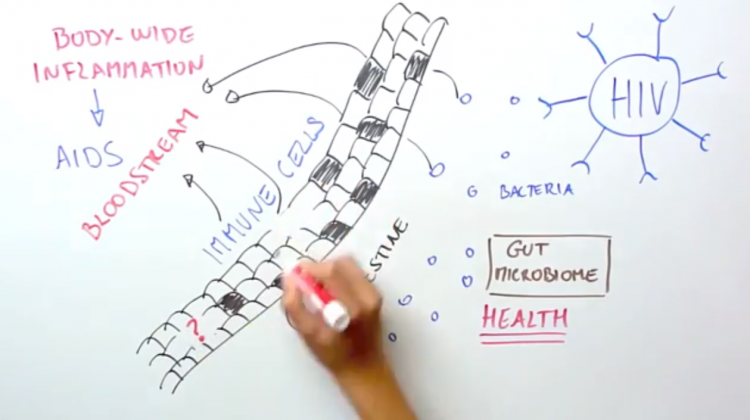 BODY-WIDE
INFLAMMATION
AIDS
BLOODSTREAM
IMMUNE CELLS
HIV
BACTERIA
GUT
MICROBIOME
HEALTH
ESTINE
?